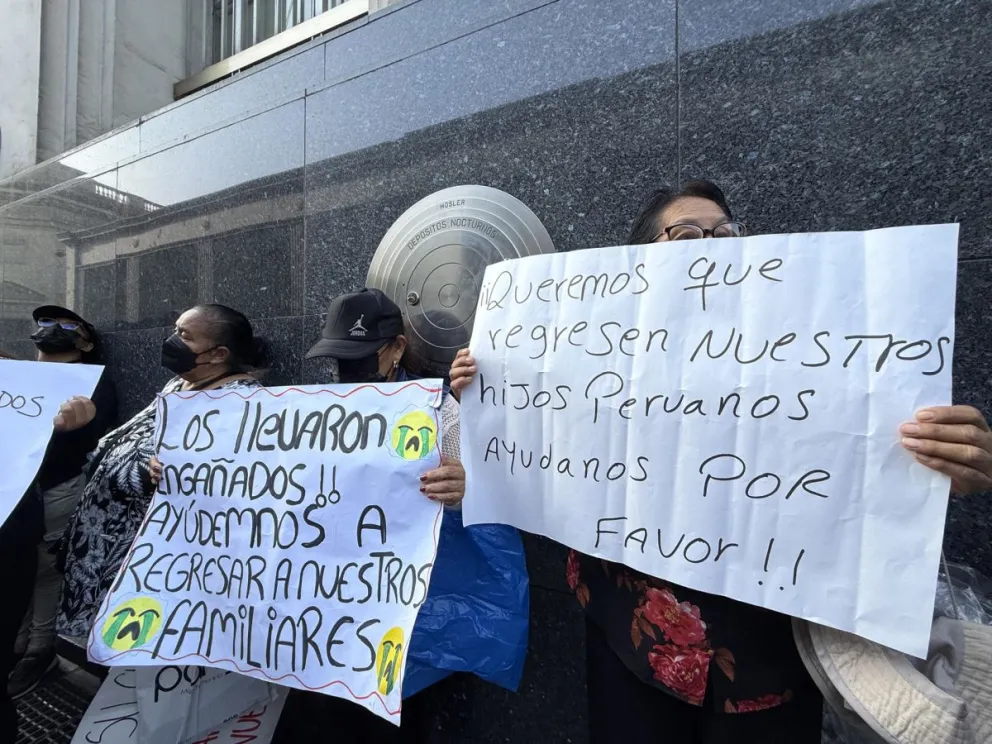 DOS
MOSLER
DEPOSITOS NOCTURNOS
JORDAN
LOS llevARON
ENGAÑADOS!!
AYÚDEMNOS A
REGRESAR A NUESTROS
FAMILIARES
¡¡Queremos que
regresen NUESTROS
hijos Peruanos
AYUDANOS POR
FAVOR!!